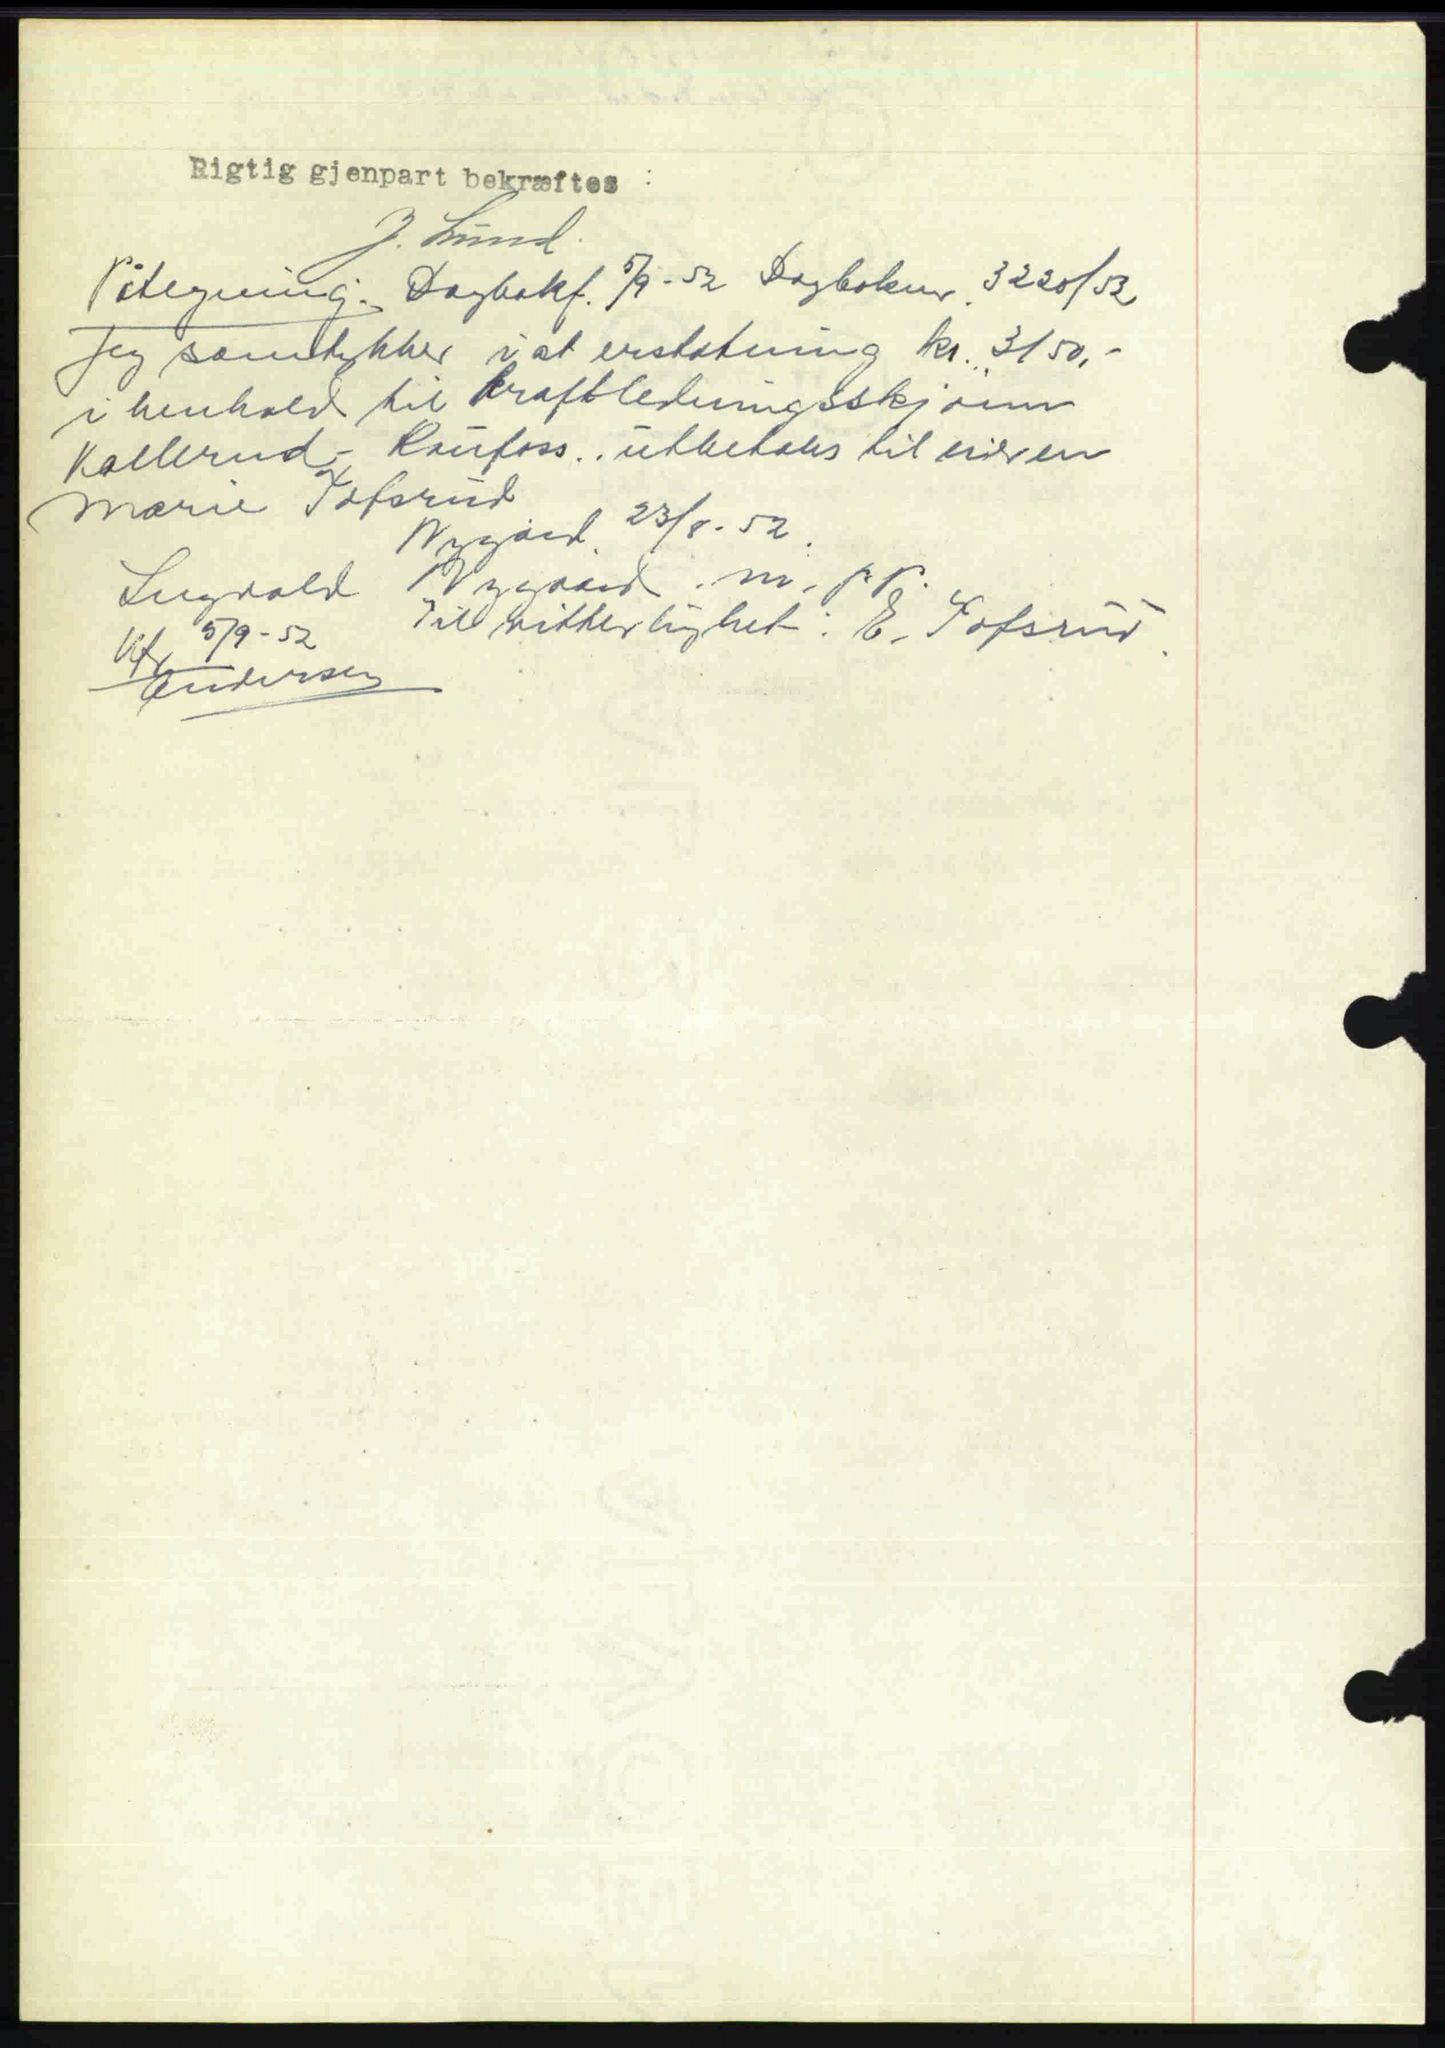 Rigtig gjenpart bekræftes :
J. Lund.
Påtegning. Dagbokf. 5/9-52 Dagboknr. 3220/52
Jeg samtykker i at erstatning kr. 3150,-
i henhold til kraftledningsskjønn
Kallerud - Raufoss.. utbetales til eieren
Marie Tofsrud
Nygård. 23/8-52.
Nygaard . m. p. p.
Til vitterlighet: E. Tofsrud.
5/9-52
Andersen